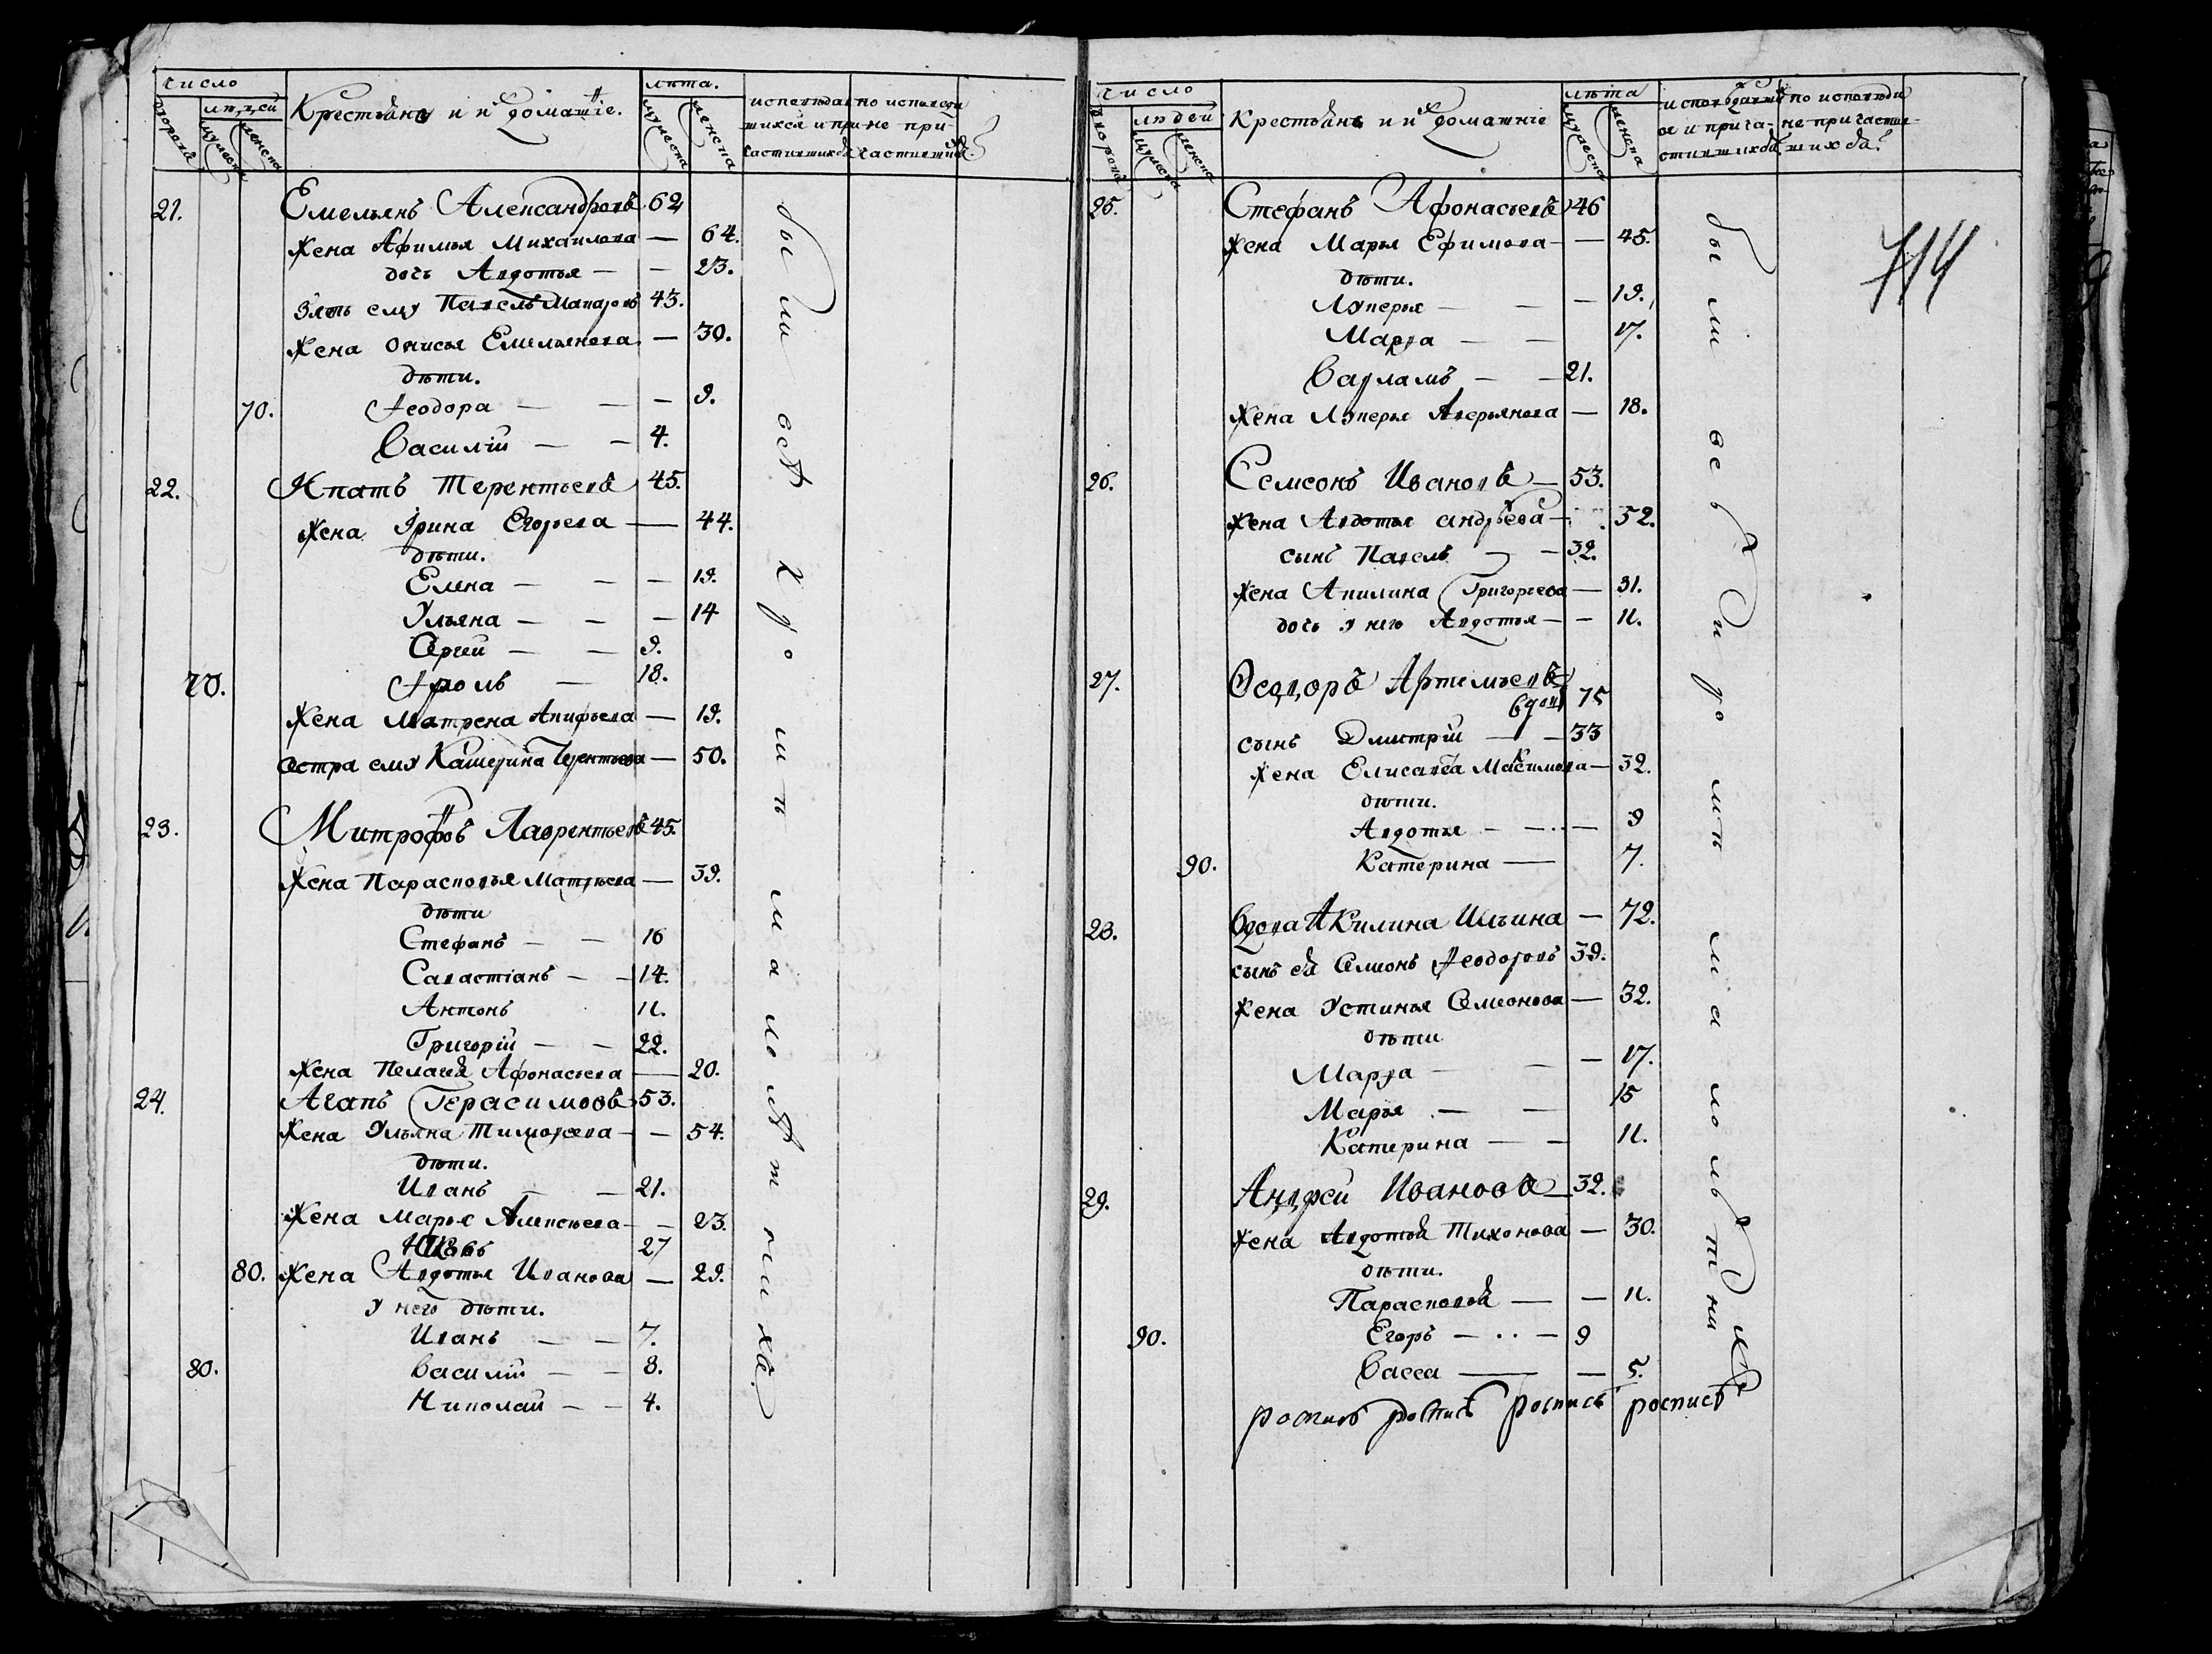 число
людей
дворовъ
мужеска
женска
Крестьянѣ и ихъ домашніе.
лѣта.
мужеска
женска
исповѣдав
шихся и при
частившихся
по исповѣди
не при-
частивших.
21. Емельянъ Александровъ 62
жена Афимья Михаилова — 64.
дочь Авдотья — — 23.
Зять ему Павелъ Макаровъ 43.
жена Онисья Емельянова — 30.
дѣти.
70. Ѳеодора — — — 9.
Василій — — 4.
22. Ипатъ Терентьевъ 45.
жена Ірина Егорева — 44.
дѣти.
Елена — — — 19.
Ульяна — — — 14
Сергей — — 9.
70. Фролъ — 18.
жена Матрена Акифьева — 19.
сестра ему Катерина Терентьева — 50.
23. Митрофанъ Лаврентьевъ 45.
жена Парасковья Матвѣева — 39.
дѣти
Стефанъ — — 16
Савастіанъ — — 14.
Антонъ 11.
Григорій — — 22.
жена Пелагея Афонасьева — 20.
24. Агапъ Герасимовъ 53.
жена Ульяна Тимофеева — — 54.
дѣти.
Иванъ — — 21.
жена Марья Алексѣева — — 23.
Яковъ 27
80. жена Авдотья Иванова — 29.
у него дѣти.
Иванъ — — 7.
80. Василій — — 8.
Николай — — 4.
были всѣ кромѣ малолѣтнихъ
число
людей
дворовъ
мужеска
женска
Крестьянѣ и ихъ домашніе
лѣта
мужеска
женска
исповѣдавши
ся и прича-
стившихся
по исповѣди
не причастив-
шихся.
714
25. Стефанъ Афонасьевъ 46
жена Марья Ефимова — — 45.
дѣти.
Лукерья — — — 19.
Марѳа — — 17.
Варламъ — — 21.
жена Лукерья Аверьянова — 18.
26. Семсонъ Ивановъ — 53.
жена Авдотья Андрѣева — 52.
сынъ Павелъ — — 32.
жена Акилина Григорьева — 31.
дочь у него Авдотья — — 11.
27. Ѳеодоръ Артемьевъ
вдов 75
сынъ Дмитрій — — 33
жена Елисавѣа Максимова — 32.
дѣти.
Авдотья — — — 9
90. Катерина — 7.
28. вдова Акилина Ильина — 72.
сынъ ея Семионъ Ѳеодоровъ 39.
жена Устинья Семионова — 32.
дѣти
Марѳа — — — 17.
Марья — — 15
Катерина — — 11.
29. Андрей Ивановъ — 32.
жена Авдотья Тихонова — 30.
дѣти.
Парасковья — — 11.
90. Егоръ — — 9
Васса — — 5.
роспись роспись роспись роспись
были всѣ кромѣ малолѣтнихъ